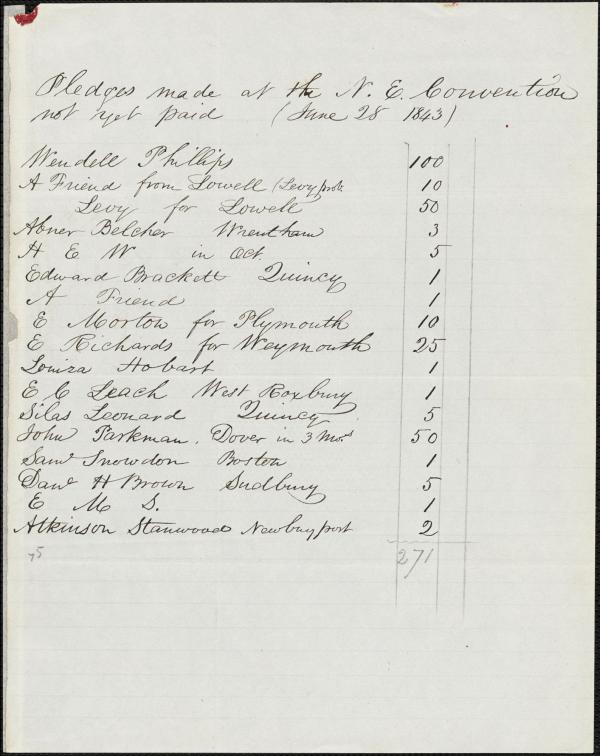 Pledges made at the N. E. Convention
not yet paid (June 28 1843)
Wendell Phillips 100
A Friend from Lowell (Levy prob. 10
Levy for Lowell 50
Abner Belcher Wrentham 3
H E W in Oct. 5
Edward Brackett Quincy 1
A Friend 1
E Morton for Plymouth 10
E Richards for Weymouth 25
Louiza Hobart 1
E C Leach West Roxbury 1
Silas Leonard Quincy 5
John Parkman. Dover in 3 Mos 50
Saml Snowdon Boston 1
Danl H Brown Sudbury 5
E M S. 1
Atkinson Stanwood Newburyport 2
75 271